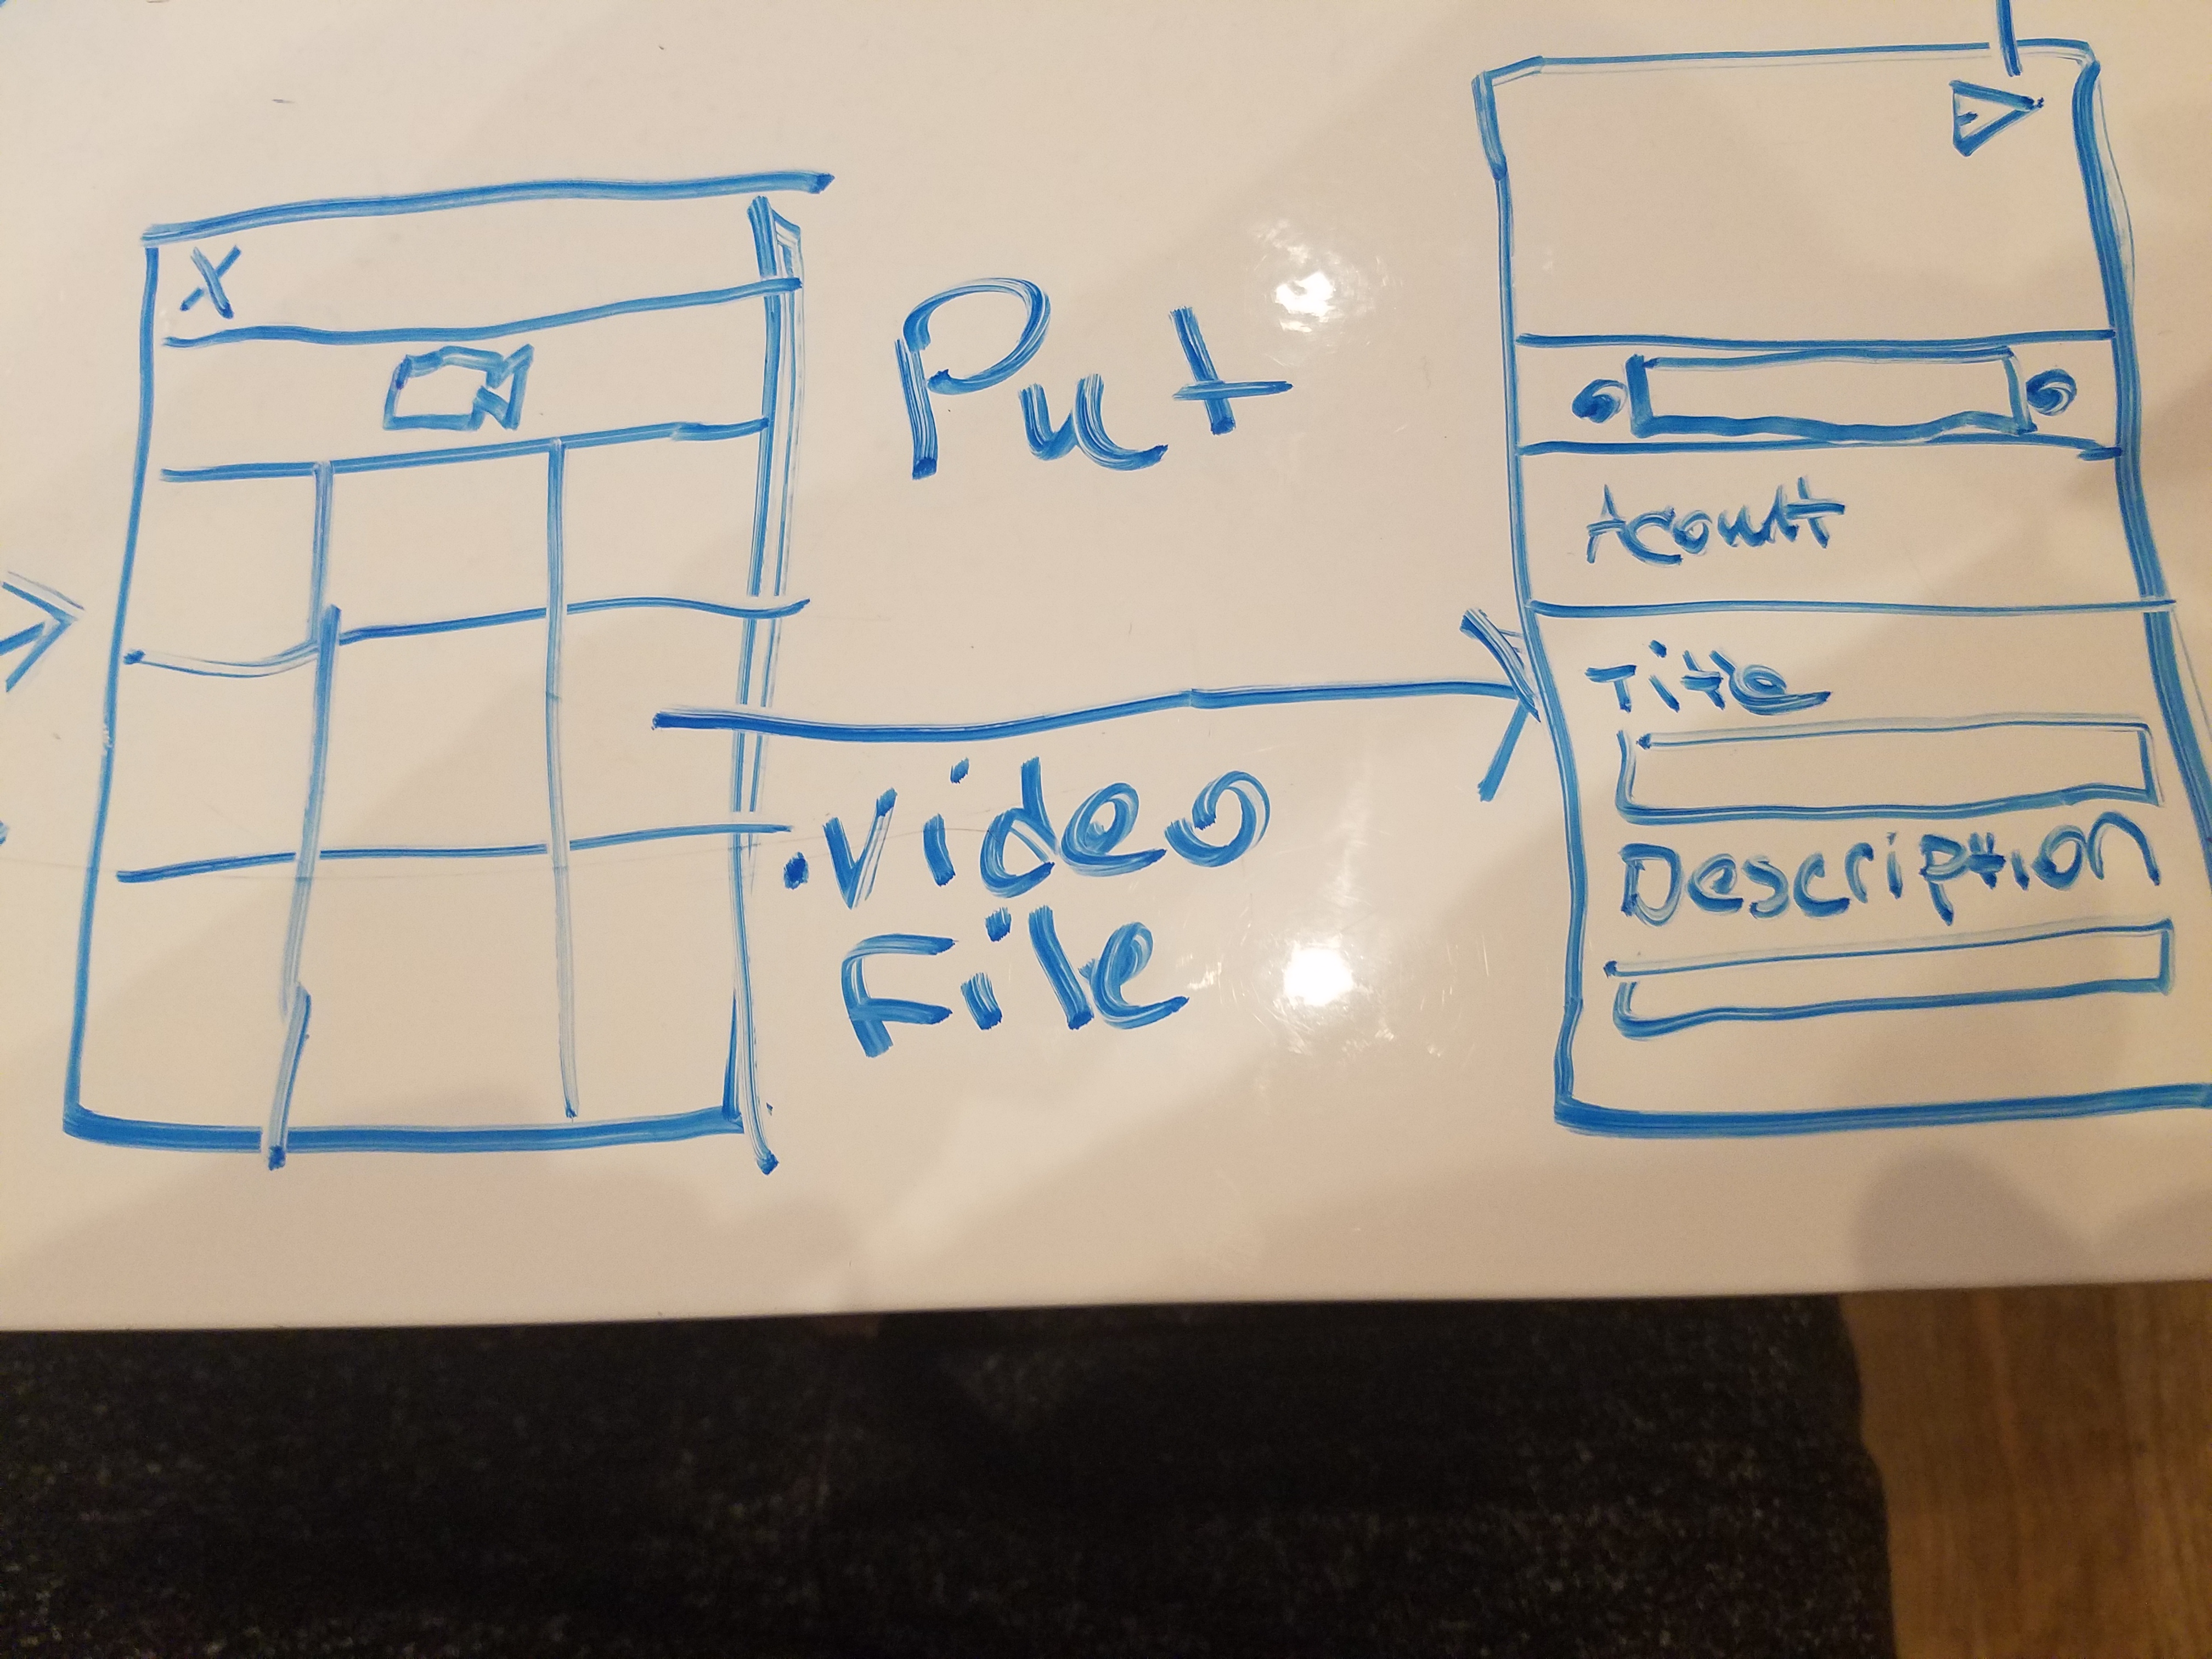 X
Put
.Video
File
Acount
Title
Description